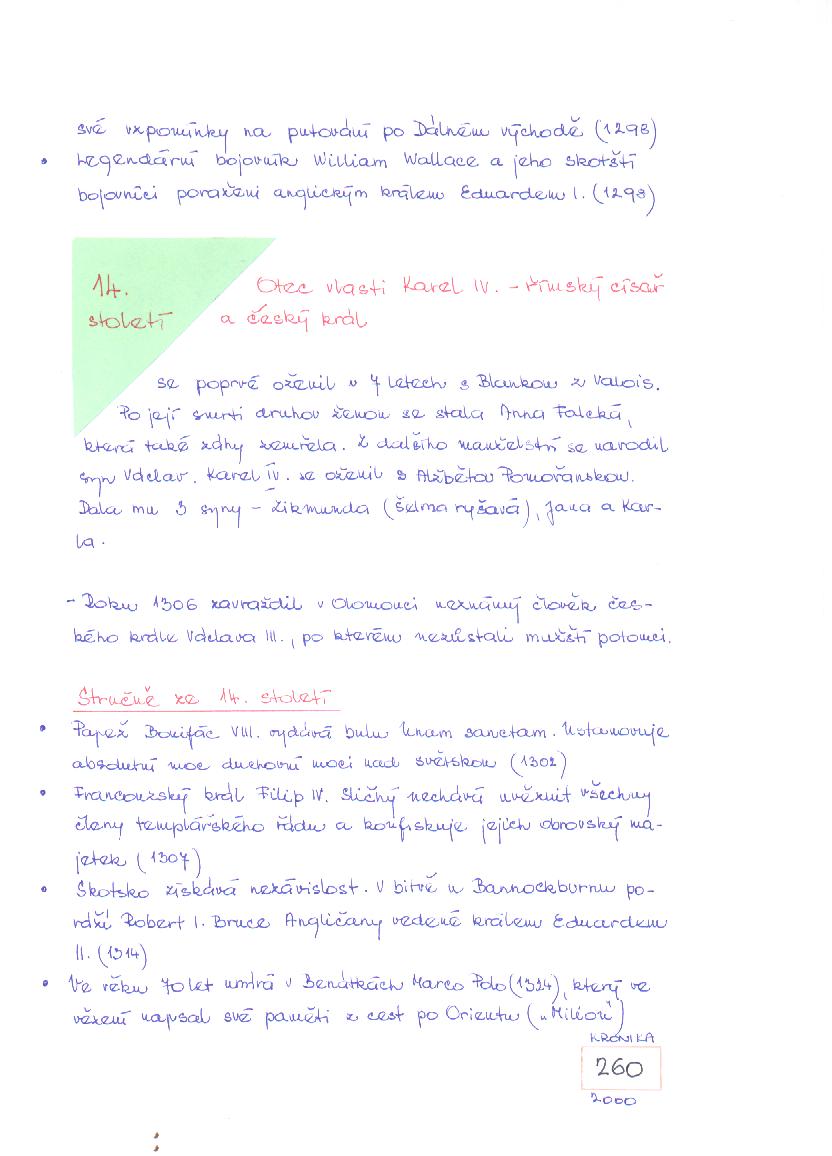 své vzpomínky na putování po Dálném východě (1298)
• Legendární bojovník William Wallace a jeho skotští
bojovníci poraženi anglickým králem Eduardem I. (1298)
14.
století
Otec vlasti Karel IV. - římský císař
a český král
se poprvé oženil v 7 letech s Blankou z Valois.
Po její smrti druhou ženou se stala Anna Falcká,
která také záhy zemřela. Z dalšího manželství se narodil
syn Václav. Karel IV. se oženil s Alžbětou Pomořanskou.
Dala mu 3 syny - Zikmunda (šelma ryšavá), Jana a Kar-
la.
- Roku 1306 zavraždil v Olomouci neznámý člověk čes-
kého krále Václava III., po kterém nezůstali mužští potomci.
Stručně ze 14. století
• Papež Bonifác VIII. vydává bulu Unam sanctam. Ustanovuje
absolutní moc duchovní moci nad světskou (1302)
• Francouzský král Filip IV. Sličný nechává uvěznit všechny
členy templářského řádu a konfiskuje jejich obrovský ma-
jetek (1307)
• Skotsko získává nezávislost. V bitvě u Bannockburnu po-
ráží Robert I. Bruce Angličany vedené králem Eduardem
II. (1314)
• Ve věku 70 let umírá v Benátkách Marco Polo (1324), který ve
vězení napsal své paměti z cest po Orientu („Milión")
KRONIKA
260
2000